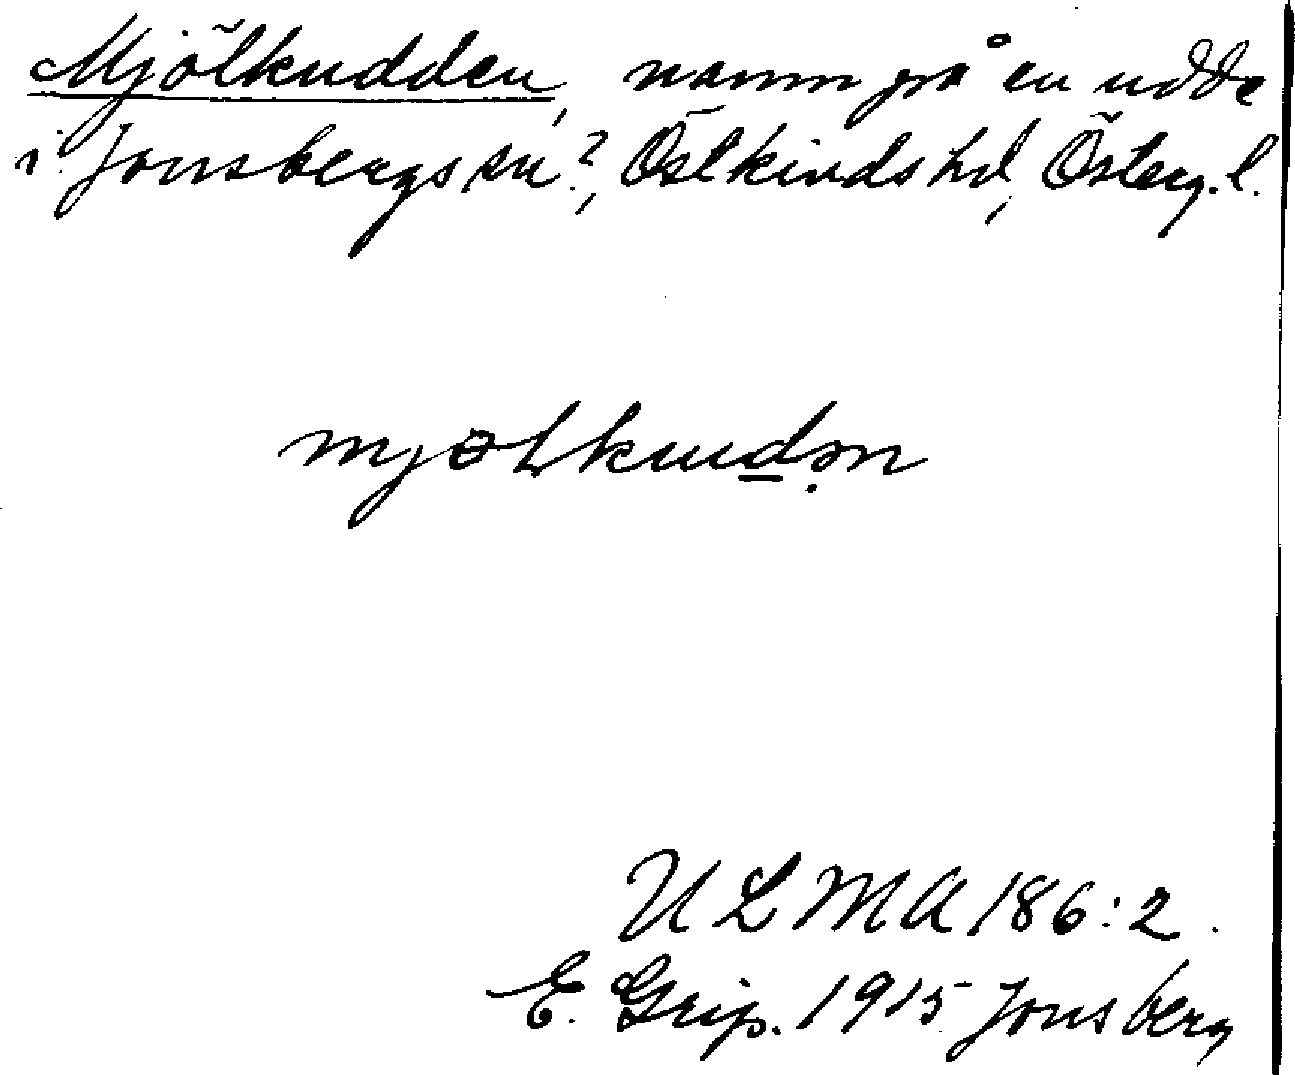 Mjölkudden, namn på en udde
i Jonsbergs sn?, Östkinds hd, Österg. l.
mjɵlkudən
ULMA 186:2.
E. Grip. 1915 Jonsberg